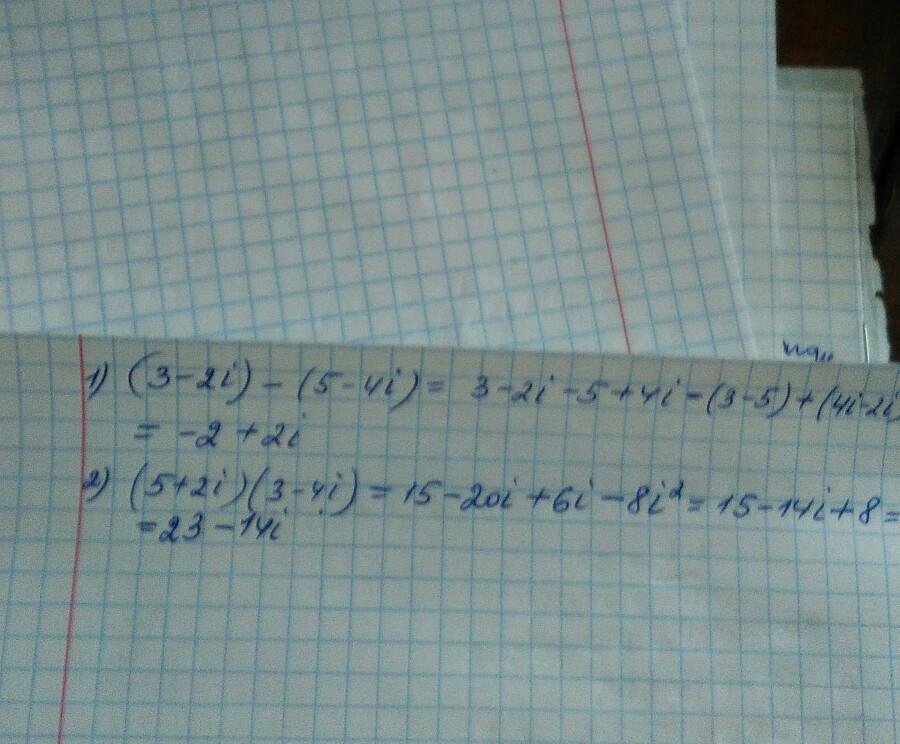 1) (3-2i) - (5-4i) = 3-2i-5+4i-(3-5)+(4i-2i)
= -2 + 2i
2) (5+2i)(3-4i) = 15-20i+6i-8i² = 15-14i+8=
=23-14i